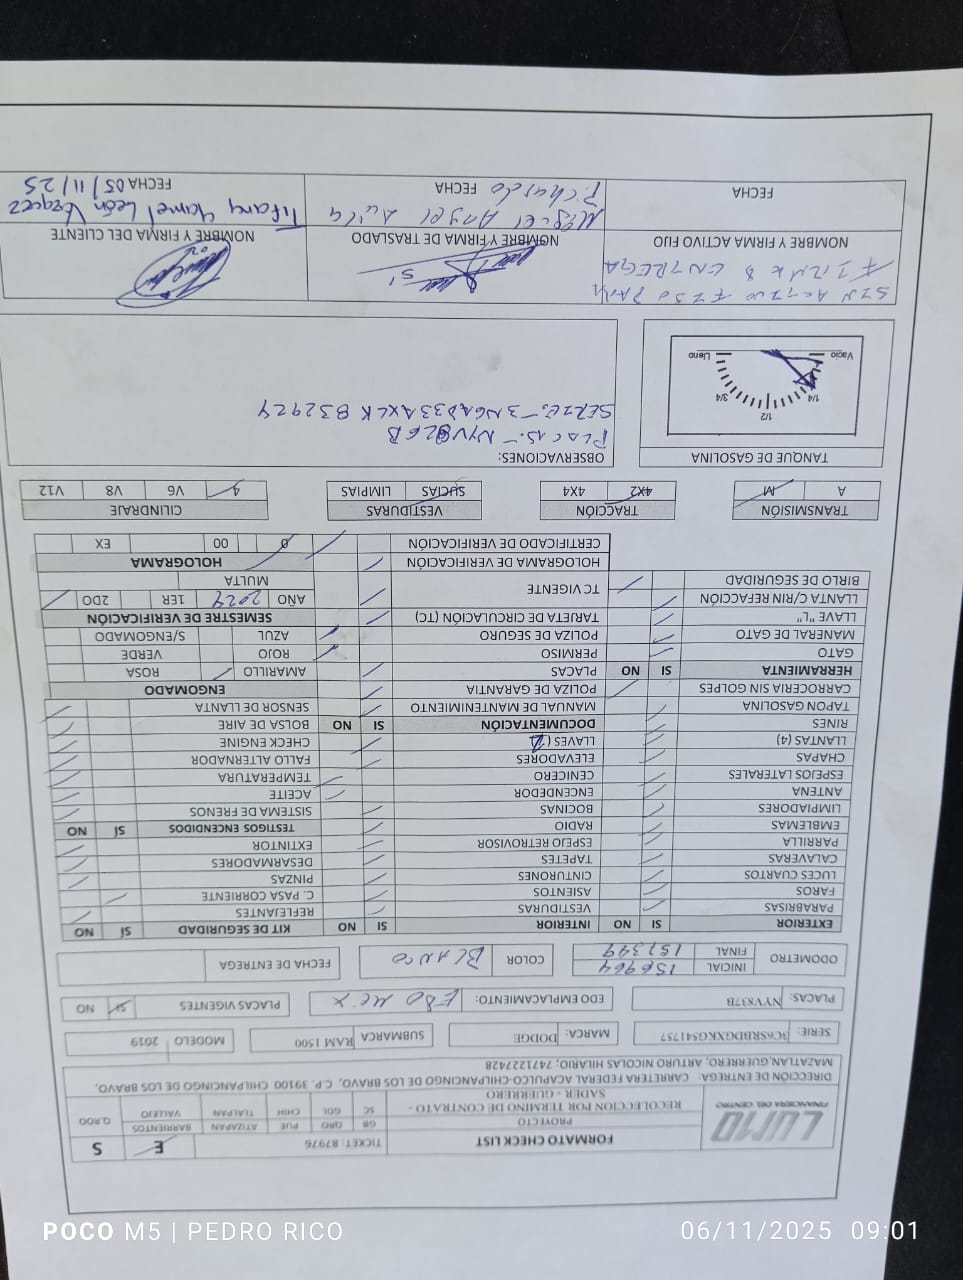 LUMO
FINANCIERA DEL CENTRO
FORMATO CHECK LIST
TICKET: 87976
E S
PROYECTO
RECOLECCION POR TERMINO DE CONTRATO -
SADER - GUERRERO
GB GRO PUE ATIZAPAN BARRIENTOS
SC GDL CHIH TLALPAN VALLEJO Q.ROO
DIRECCIÓN DE ENTREGA: CARRETERA FEDERAL ACAPULCO-CHILPANCINGO DE LOS BRAVO, C.P. 39100 CHILPANCINGO DE LOS BRAVO,
MAZATLAN,GUERRERO, ARTURO NICOLAS HILARIO; 7471227428
SERIE: 3C6SRBDGXKG541757 MARCA: DODGE SUBMARCA RAM 1500 MODELO 2019
PLACAS: NYV837B EDO EMPLACAMIENTO: EDO MEX PLACAS VIGENTES SI NO
ODOMETRO INICIAL 156964 COLOR BLANCO FECHA DE ENTREGA
FINAL 157349
EXTERIOR SI NO INTERIOR SI NO KIT DE SEGURIDAD SÍ NO
PARABRISAS VESTIDURAS REFLEJANTES
FAROS ASIENTOS C. PASA CORRIENTE
LUCES CUARTOS CINTURONES PINZAS
CALAVERAS TAPETES DESARMADORES
PARRILLA ESPEJO RETROVISOR EXTINTOR
EMBLEMAS RADIO TESTIGOS ENCENDIDOS SÍ NO
LIMPIADORES BOCINAS SISTEMA DE FRENOS
ANTENA ENCENDEDOR ACEITE
ESPEJOS LATERALES CENICERO TEMPERATURA
CHAPAS ELEVADORES FALLO ALTERNADOR
LLANTAS (4) LLAVES (2) CHECK ENGINE
RINES DOCUMENTACIÓN SI NO BOLSA DE AIRE
TAPON GASOLINA MANUAL DE MANTENIMIENTO SENSOR DE LLANTA
CARROCERIA SIN GOLPES POLIZA DE GARANTIA ENGOMADO
HERRAMIENTA SI NO PLACAS AMARILLO ROSA
GATO PERMISO ROJO VERDE
MANERAL DE GATO POLIZA DE SEGURO AZUL S/ENGOMADO
LLAVE "L" TARJETA DE CIRCULACIÓN (TC) SEMESTRE DE VERIFICACIÓN
LLANTA C/RIN REFACCIÓN TC VIGENTE AÑO 2024 1ER 2DO
BIRLO DE SEGURIDAD MULTA
HOLOGRAMA DE VERIFICACIÓN HOLOGRAMA
CERTIFICADO DE VERIFICACIÓN 0 00 EX
TRANSMISIÓN TRACCIÓN VESTIDURAS CILINDRAJE
A M 4X2 4X4 SUCIAS LIMPIAS 4 V6 V8 V12
TANQUE DE GASOLINA
Vacio 1/4 1/2 3/4 Lleno
OBSERVACIONES:
PLACAS.- NYV826B
SERIE.- 3N6AD33AXLK832924
SIN ACTIVO FIJO PARA
FIRMA D ENTREGA
NOMBRE Y FIRMA ACTIVO FIJO NOMBRE Y FIRMA DE TRASLADO NOMBRE Y FIRMA DEL CLIENTE
Miguel Angel Avila Pichardo
Tifany Yamel León Vazquez
FECHA FECHA FECHA 05/11/25
POCO M5 | PEDRO RICO
06/11/2025 09:01